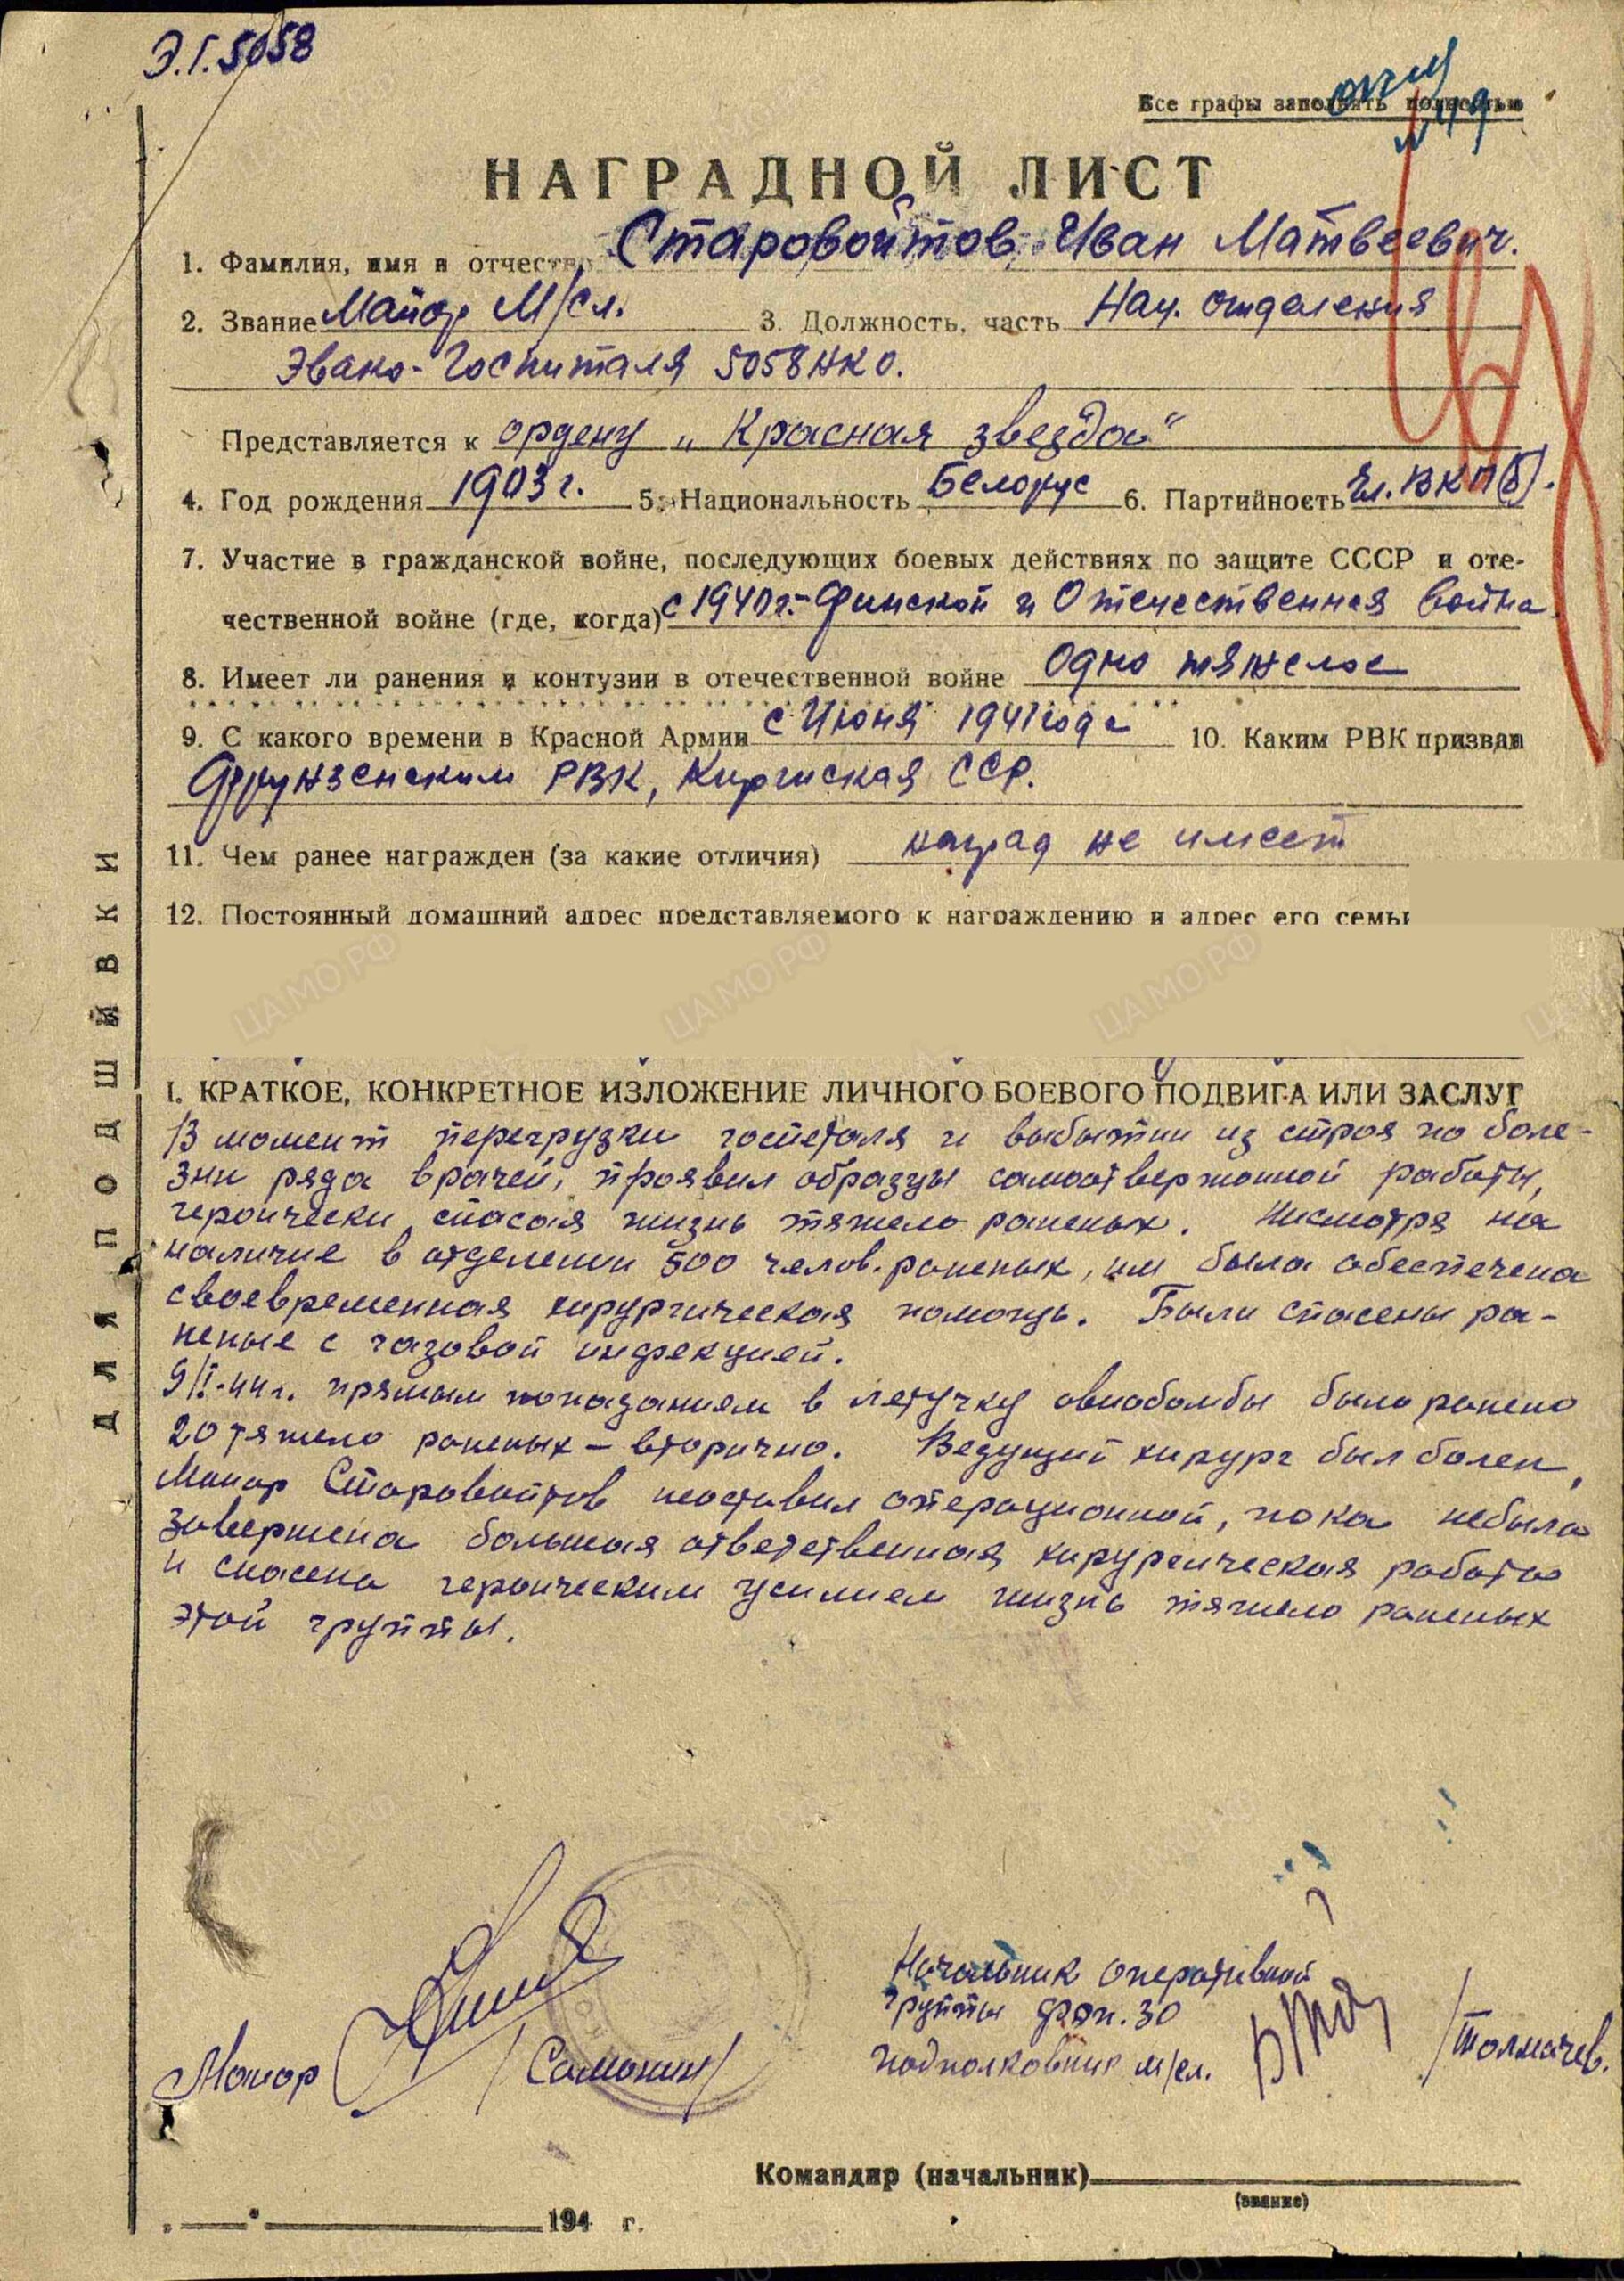 Э.Г.5058
Все графы заполнять полностью
НАГРАДНОЙ ЛИСТ
1. Фамилия, имя и отчество Старовойтов Иван Матвеевич.
2. Звание Майор М/сл. 3. Должность, часть Нач. отделения
Эвако-Госпиталя 5058 НКО.
Представляется к ордену „Красная звезда"
4. Год рождения 1903 г. 5. Национальность Белорус 6. Партийность Чл. ВКП(б).
7. Участие в гражданской войне, последующих боевых действиях по защите СССР и оте-
чественной войне (где, когда) с 1940 г.- Финской и Отечественная война
8. Имеет ли ранения и контузии в отечественной войне Одно тяжелое
9. С какого времени в Красной Армии с Июня 1941 года 10. Каким РВК призван
Фрунзенским РВК, Киргиская ССР.
11. Чем ранее награжден (за какие отличия) наград не имеет
12. Постоянный домашний адрес представляемого к награждению и адрес его семьи
ЦАМО РФ ЦАМО РФ ЦАМО РФ
ДЛЯ ПОДШИВКИ
I. КРАТКОЕ, КОНКРЕТНОЕ ИЗЛОЖЕНИЕ ЛИЧНОГО БОЕВОГО ПОДВИГА ИЛИ ЗАСЛУГ
В момент перегрузки госпеталя и выбытии из строя по боле-
зни ряда врачей, проявил образцы самоотверженной работы,
героически спасая жизнь тяжело раненых. Несмотря на
наличие в отделении 500 челов. раненых, им была обеспечена
своевременная хирургическая помощь. Были спасены ра-
неные с газовой инфекцией.
9/II-44г. прямым попаданием в летучку авиабомбы было ранено
20 тяжело раненых – вторично. Ведущий хирург был болен,
Майор Старовойтов неоставил операционной, пока небыла
завершена большая ответственная хирургическая работа
и спасена героическим усилием жизнь тяжело раненых
этой группы.
Начальник оперативной
группы фэп. 30
Майор /Самонин/ подполковник м/сл. /Толмачев.
Командир (начальник)
(звание)
„ " 194 г.